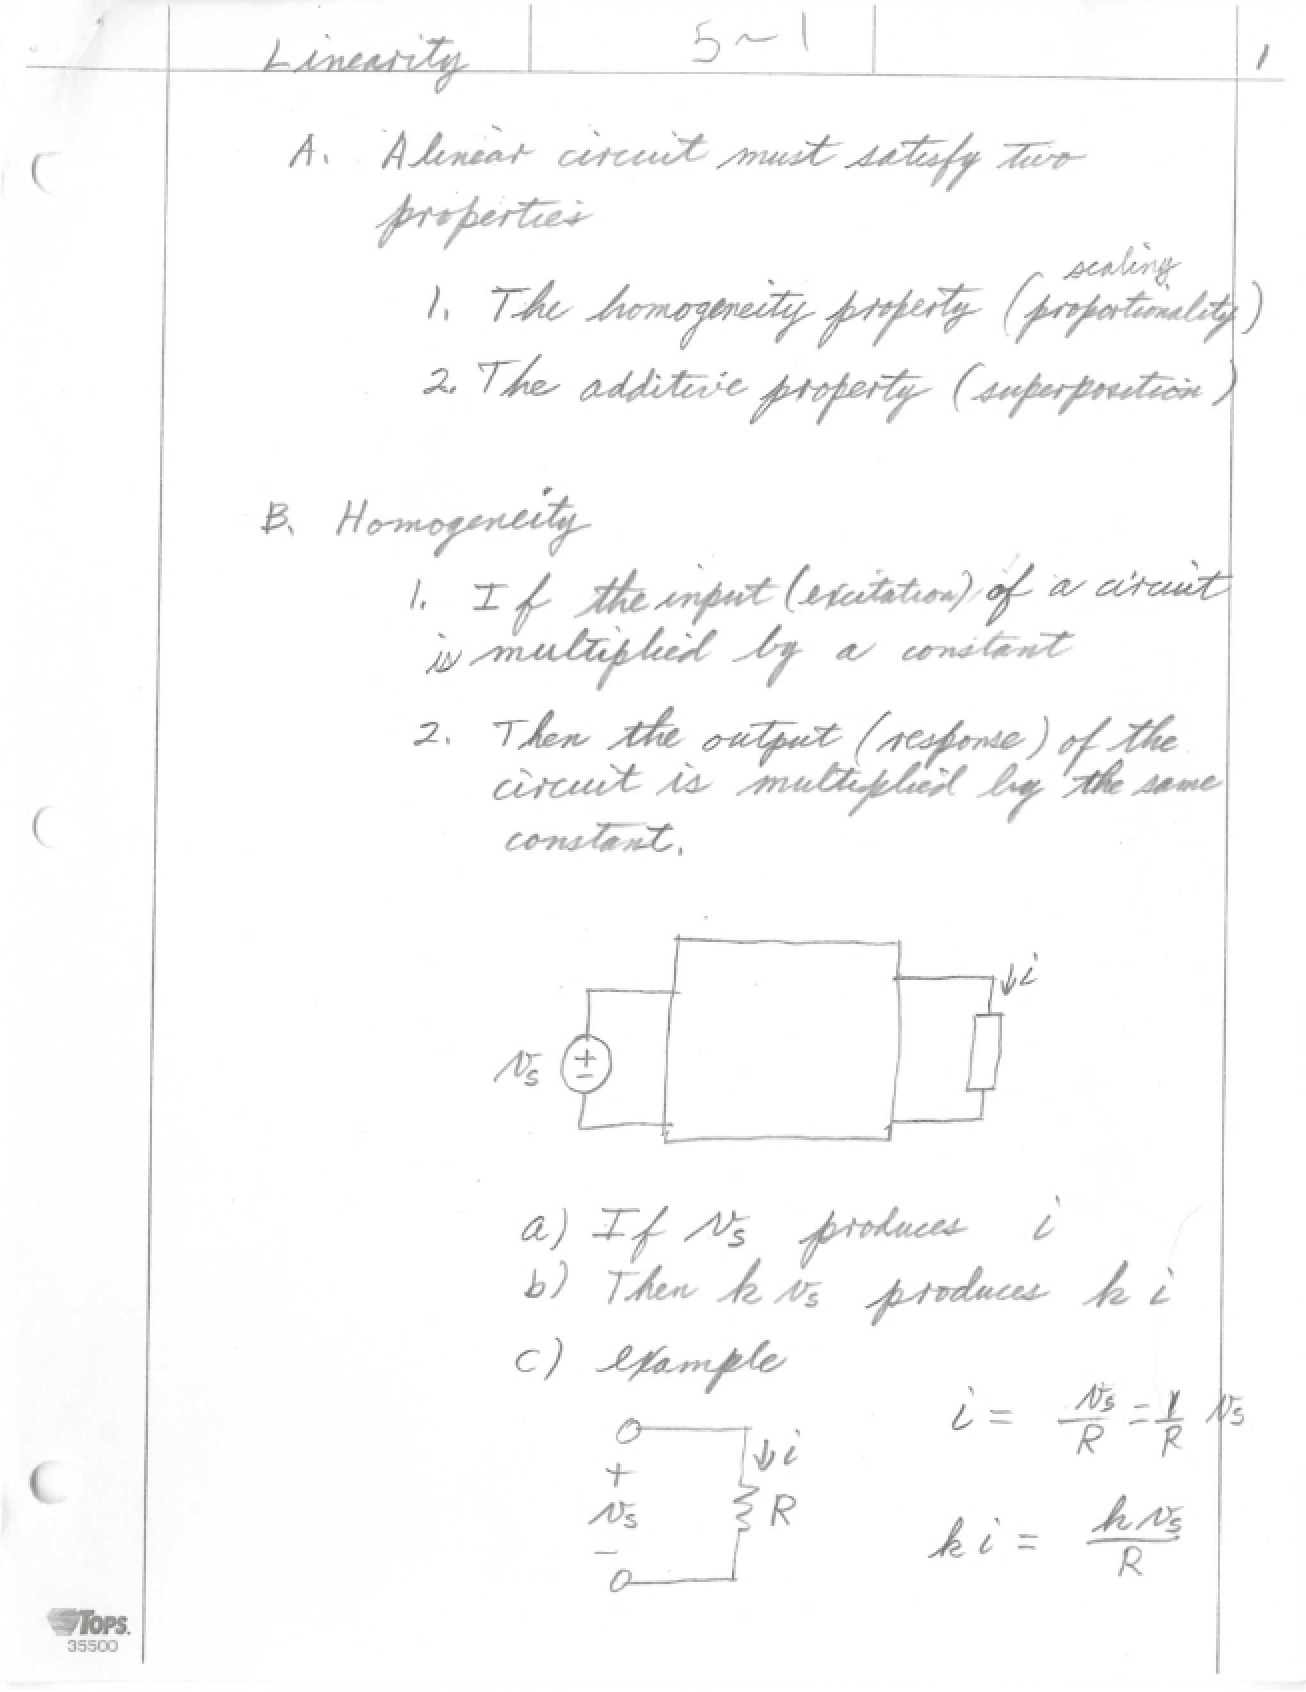 Linearity 5-1 1
A. A linear circuit must satisfy two
properties
scaling
1. The homogeneity property (proportionality)
2. The additive property (superposition)
B. Homogeneity
1. If the input (excitation) of a circuit
is multiplied by a constant
2. Then the output (response) of the
circuit is multiplied by the same
constant.
i
vs + -
a) If vs produces i
b) Then k vs produces k i
c) example
i = vs/R = 1/R vs
i
+
vs R
-
k i = k vs/R
TOPS.
35500